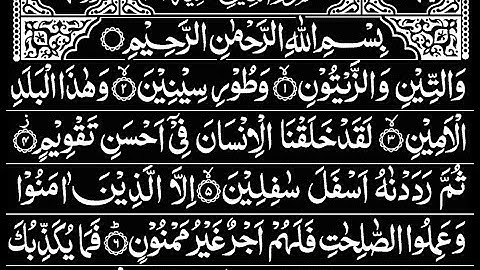 بِسْمِ اللّٰهِ الرَّحْمٰنِ الرَّحِيْمِ
وَالتِّيْنِ وَالزَّيْتُوْنِ ۙ﴿۱﴾ وَطُوْرِ سِيْنِيْنَ ۙ﴿۲﴾ وَهٰذَا الْبَلَدِ
الْاَمِيْنِ ۙ﴿۳﴾ لَقَدْ خَلَقْنَا الْاِنْسَانَ فِيْۤ اَحْسَنِ تَقْوِيْمٍ ؗ﴿۴﴾
ثُمَّ رَدَدْنٰهُ اَسْفَلَ سٰفِلِيْنَ ۙ﴿۵﴾ اِلَّا الَّذِيْنَ اٰمَنُوْا
وَعَمِلُوا الصّٰلِحٰتِ فَلَهُمْ اَجْرٌ غَيْرُ مَمْنُوْنٍ ؕ﴿۶﴾ فَمَا يُكَذِّبُكَ